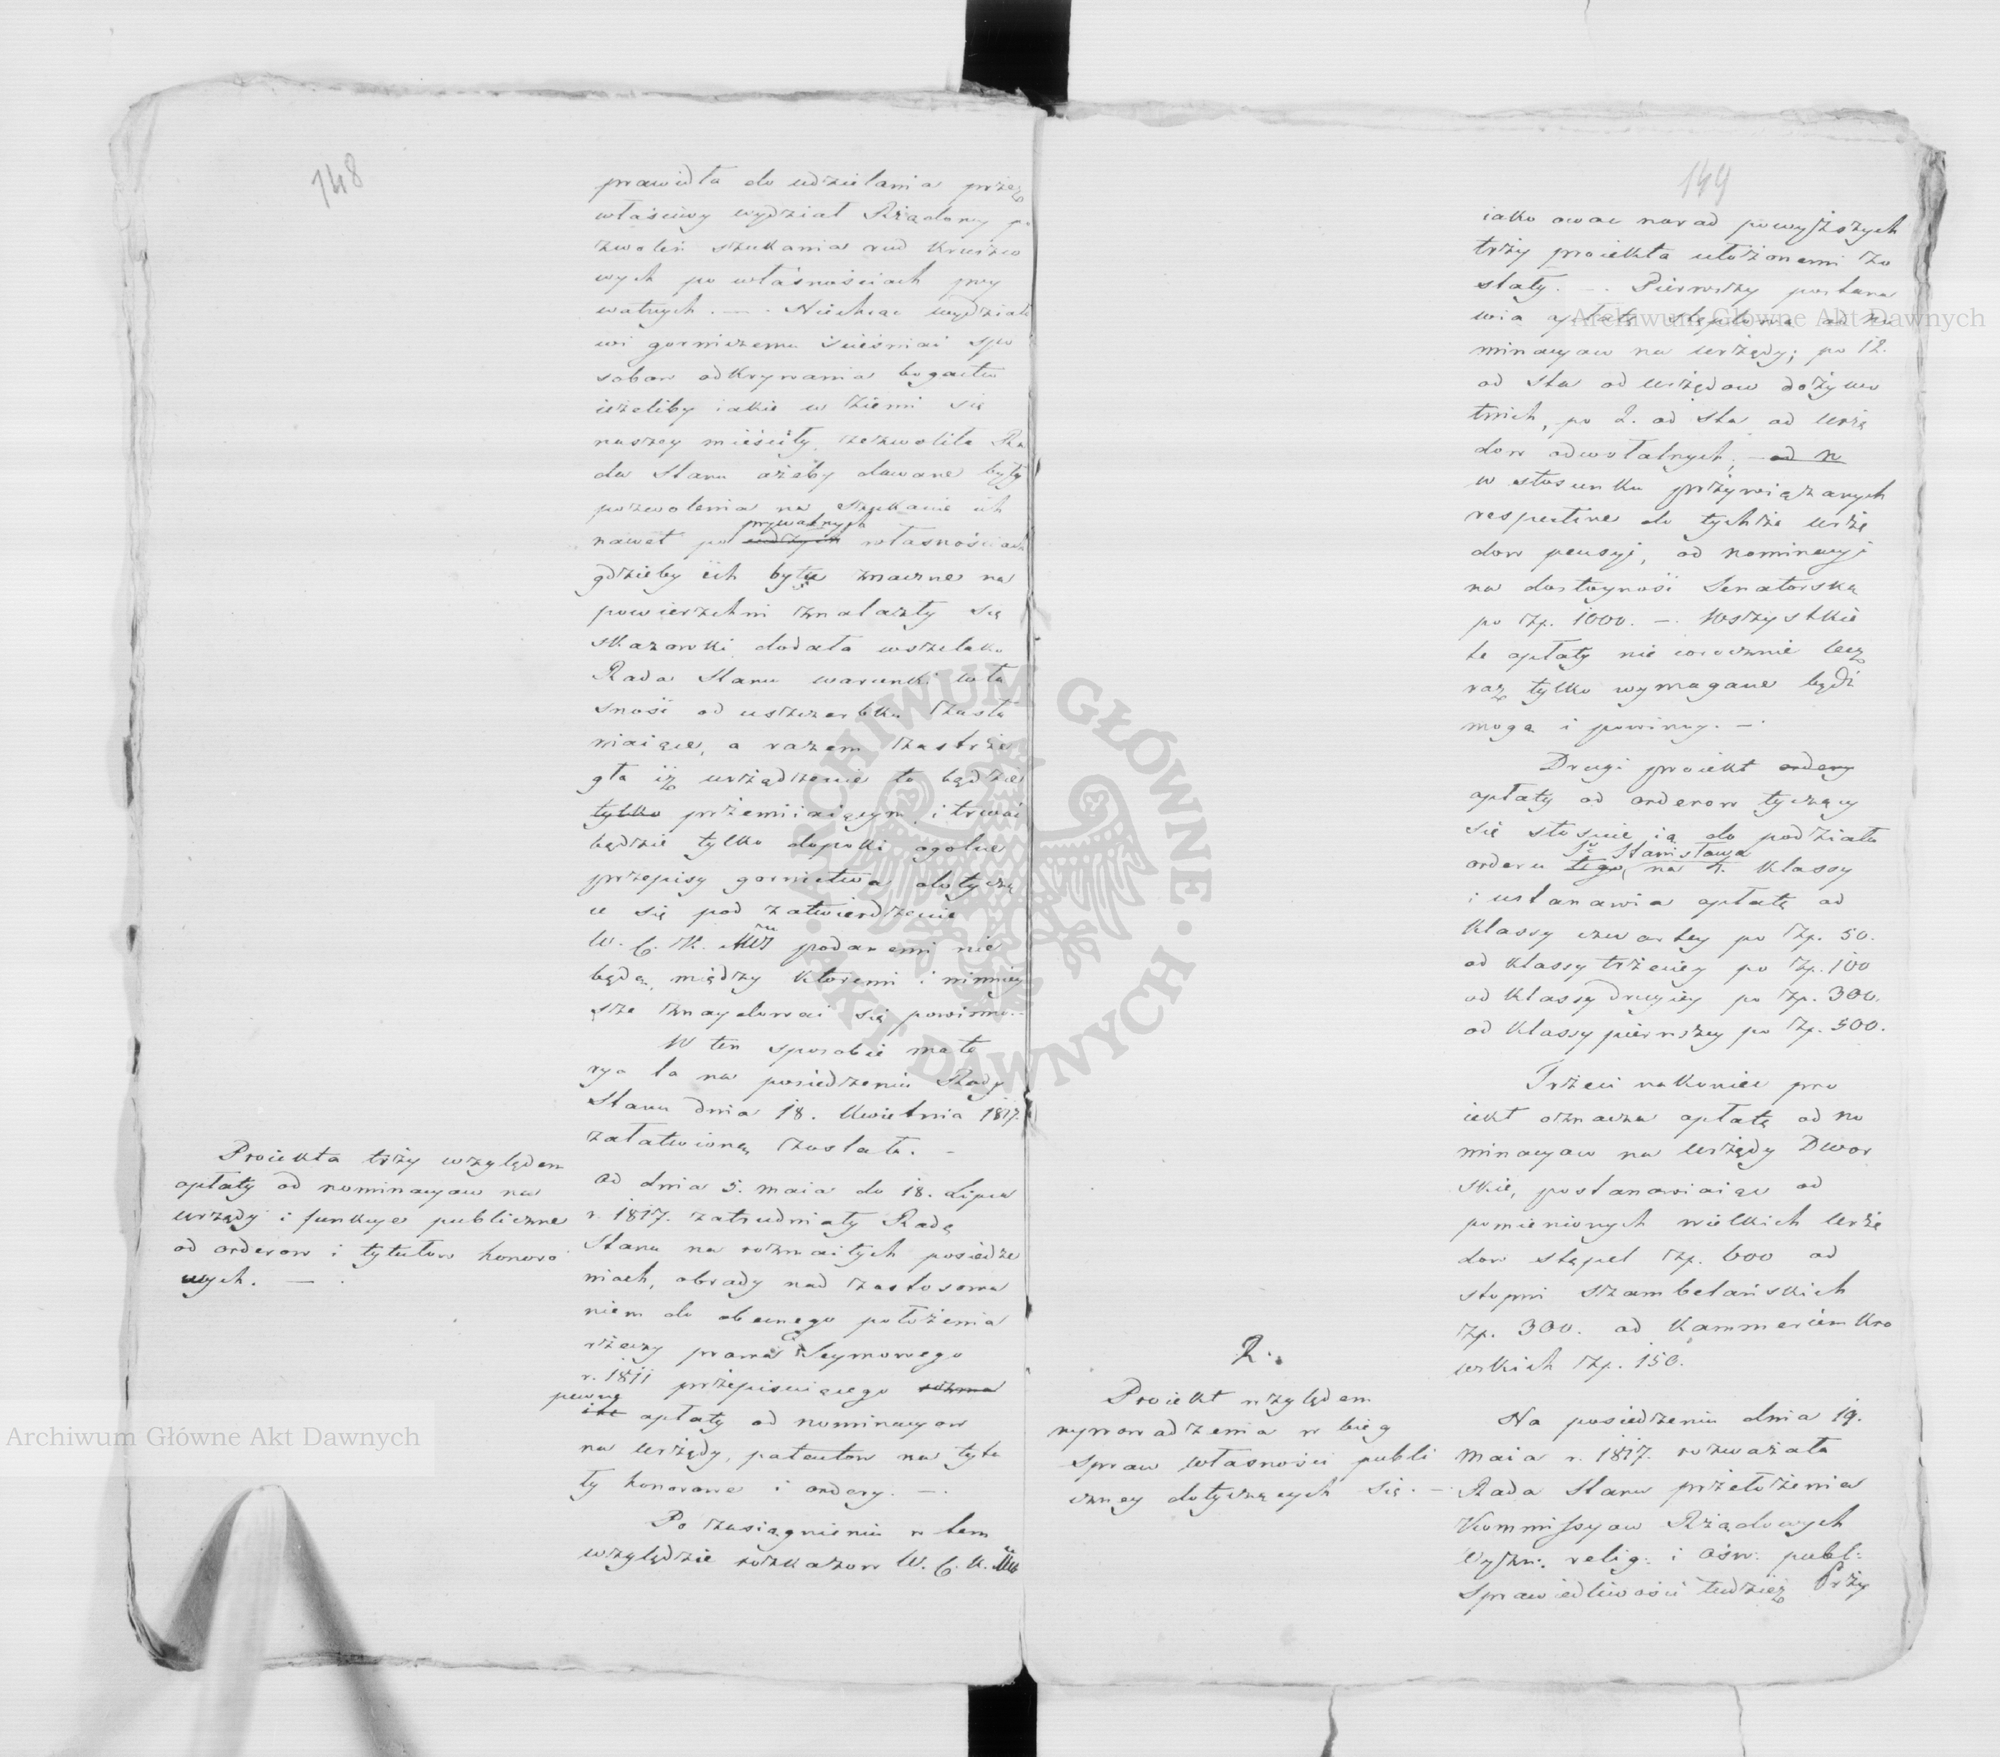 148
prawidła do udzielania przez
właściwy wydział Rządowy po
zwoleń szukania rud kruszco
wych po własnościach pry
watnych. — . Niechcąc wydziało
wi gorniczemu ścieśniać spo
sobow odkrywania bogactw
ieżeliby iakie w ziemi się
naszey mieściły, zezwoliła Ra
da Stanu ażeby dawane były
pozwolenia na szukanie ich
prywatnych
nawet po cudzych własnościach
gdzieby ich bytu znaczne na
powierzchni znalazły się
skazowki, dodała wszelako
Rada Stanu warunki wła
sność od uszczerbku zasła
niaiące, a razem zastrze
gła iż urządzenie to będzie
tylko przemiiaiącym, i trwać
będzie tylko dopoki ogolne
przepisy gornictwa dotyczą
ce się pod zatwierdzenie
W. C. K. Mści podanemi nie
będą, między ktoremi i ninniey
sze znaydować się powinno. -
W ten sposobie mate
rya ta na posiedzeniu Rady
Stanu dnia 18. Kwietnia 1817.
załatwioną została. -
Proiekta trzy względem
opłaty od nominacyow na
urzędy i funkcye publiczne
od orderow i tytułow honoro
wych. — .
Od dnia 5. maia do 18. Lipca
r. 1817. zatrudniały Radę
Stanu na rozmaitych posiedze
niach, obrady nad zastosowa
niem do obecnego położenia
rzeczy prawa Seymowego
r. 1811 przepisuiącego rozma
pewne
ite opłaty od nominacyow
na urzędy, patentow na tytu
ły honorowe i ordery. — .
Po zasiągnieniu w tem
względzie rozkazow W. C. K. Mci
149
iako owoc narad powyższych
trzy proiekta ułożonemi zo
stały. — . Pierwszy postana
wia opłatę stęplową od no
minacyow na urzędy; po 12.
od sta od urzędow dożywo
tnich, po 2. od sta od urzę
dow odwołalnych, — od n
w stosunku przywiązanych
respective do tychże urzę
dow pensyi, od nominacyi
na dostoyność Senatorską
po Zp. 1000. — . Wszystkie
te opłaty nie corocznie lecz
raz tylko wymagane bydź
mogą i powinny. — .
Drugi proiekt ordery
opłaty od orderow tyczący
się stosuie ią do podziału
So Stanisława
orderu tego, na 4. klassy
i ustanawia opłatę od
klassy czwartey po Zp. 50.
od klassy trzeciey po Zp. 100
od klassy drugiey po Zp. 300.
od klassy pierwszey po Zp. 500.
Trzeci nakoniec pro
iekt oznacza opłatę od no
minacyow na urzędy Dwor
skie, postanawiaiąc od
pomienionych wielkich urzę
dow stępel Zp. 600 od
stopni Szambelańskich
Zp. 300. od Kammerjunkro
wskich Zp. 150.
2.
Proiekt względem
wprowadzenia w bieg
spraw własności publi
czney dotyczących się. —
Na posiedzeniu dnia 19.
Maia r. 1817. rozważała
Rada Stanu przełożenia
Kommissyow Rządowych
Wyzn: relig: i ośw: publ:
Sprawiedliwości tudzież Przy
Archiwum Główne Akt Dawnych
Archiwum Główne Akt Dawnych
· ARCHIWUM GŁÓWNE · AKT DAWNYCH